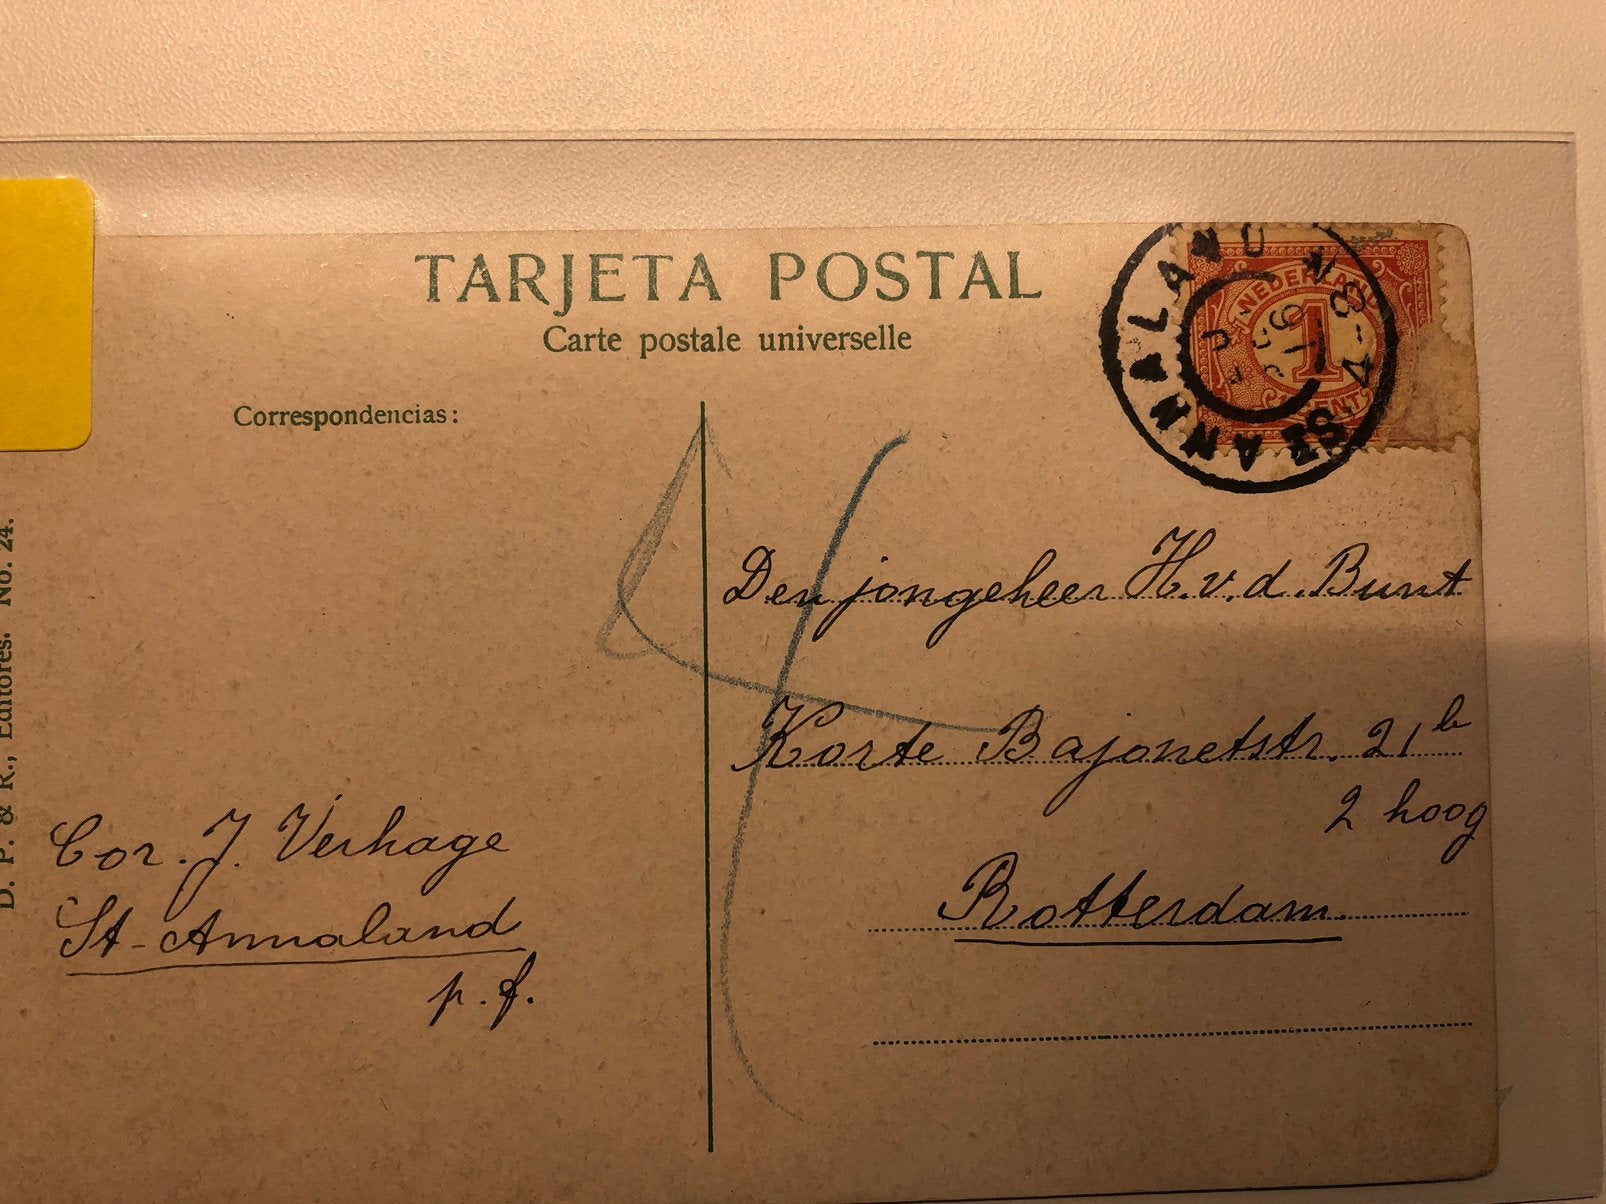 TARJETA POSTAL
Carte postale universelle
Correspondencias:
D. P. & R., Editores. No. 24.
Cor. J. Verhage
St-Annaland
p.f.
Den jongeheer H. v. d. Bunt
Korte Bajonetstr. 21b
2 hoog
Rotterdam.
ST ANNALAND
4-8 N
16
NEDERLAND
1
CENT
4